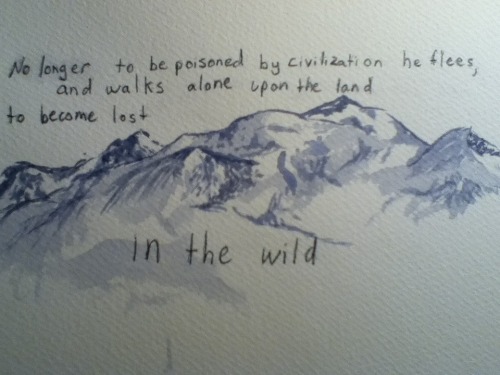 No longer to be poisoned by civilization he flees,
and walks alone upon the land
to become lost
in the wild